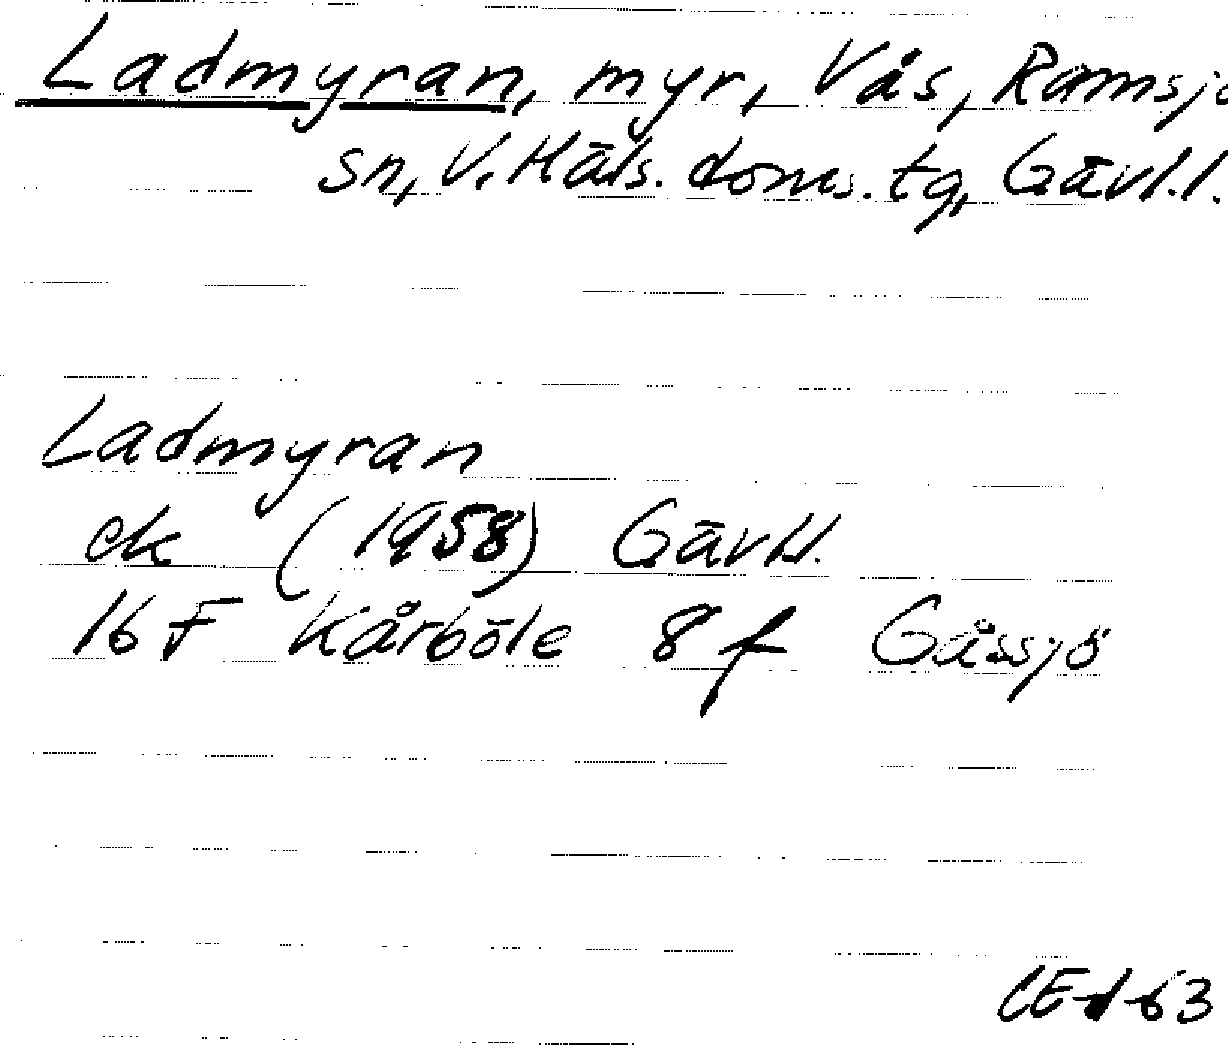 Ladmyran, myr, Vås, Ramsjö
sn, V. Häls. doms. tg, Gävl.l.
Ladmyran
ek (1958) Gävl.l.
16 F Kårböle 8 f Gåssjö
CEd 63